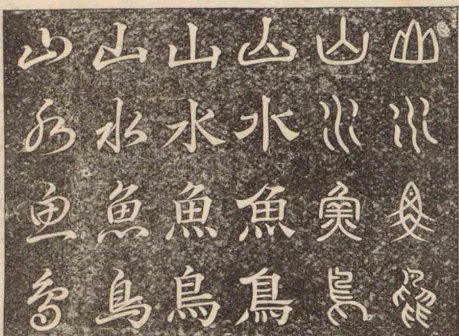 山山山山山山
水水水水水水
魚魚魚魚魚魚
鳥鳥鳥鳥鳥鳥